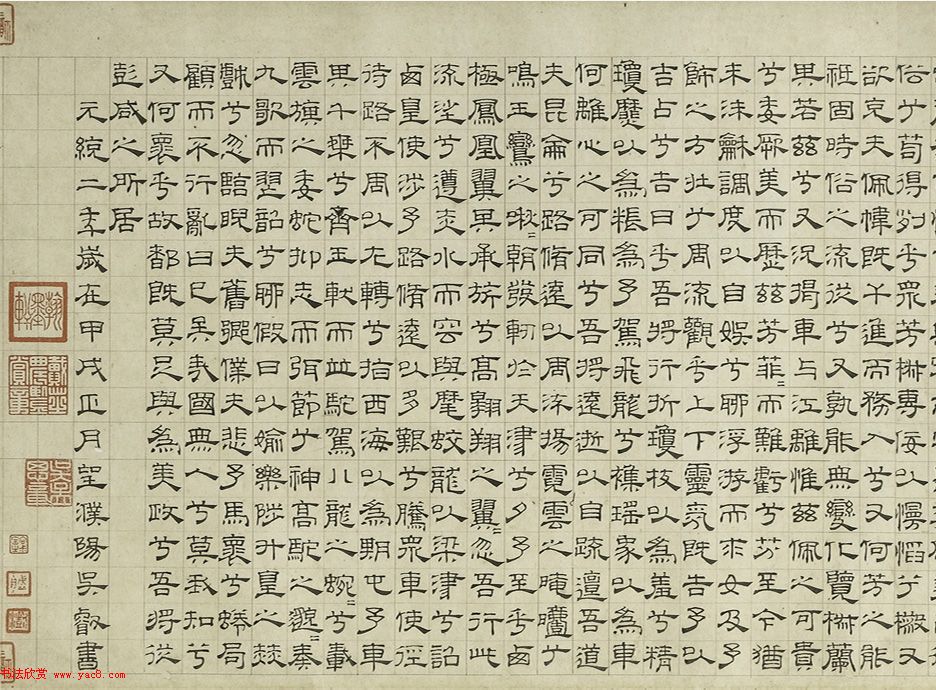 俗兮苟得列乎眾芳椒專佞以慢慆兮樧又
欲充夫佩幃既干進而務入兮又何芳之能
祗固時俗之流從兮又孰能無變化覽椒蘭
其若茲兮又況揭車與江離惟茲佩之可貴
兮委厥美而歷茲芳菲=而難虧兮芬至今猶
未沬龢調度以自娛兮聊浮游而求女及予
飾之方壯兮周流觀乎上下靈氛既告予以
吉占兮吉日乎吾將行折瓊枝以為羞兮精
瓊爢以為粻為予駕飛龍兮雜瑤象以為車
何離心之可同兮吾將遠逝以自疏邅吾道
夫昆侖兮路脩遠以周流揚霓雲之晻藹兮
鳴玉鸞之啾=朝發軔於天津兮夕予至乎西
極鳳凰翼其承旂兮高翱翔之翼=忽吾行此
流沙兮遵赤水而容與麾蛟龍以梁津兮詔
西皇使涉予路脩遠以多艱兮騰眾車使徑
待路不周以左轉兮指西海以為期屯予車
其千乘兮齊玉軑而並馳駕八龍之蜿=兮載
雲旗之委蛇抑志而弭節兮神高馳之邈=奏
九歌而舞韶兮聊假日以媮樂陟升皇之赫
戲兮忽臨睨夫舊鄉僕夫悲予馬懷兮蜷局
顧而不行亂曰已矣哉國無人兮莫我知兮
又何懷乎故都既莫足與為美政兮吾將從
彭咸之所居
元統二年歲在甲戌正月望濮陽吳叡書
书法欣赏 www.yac8.com